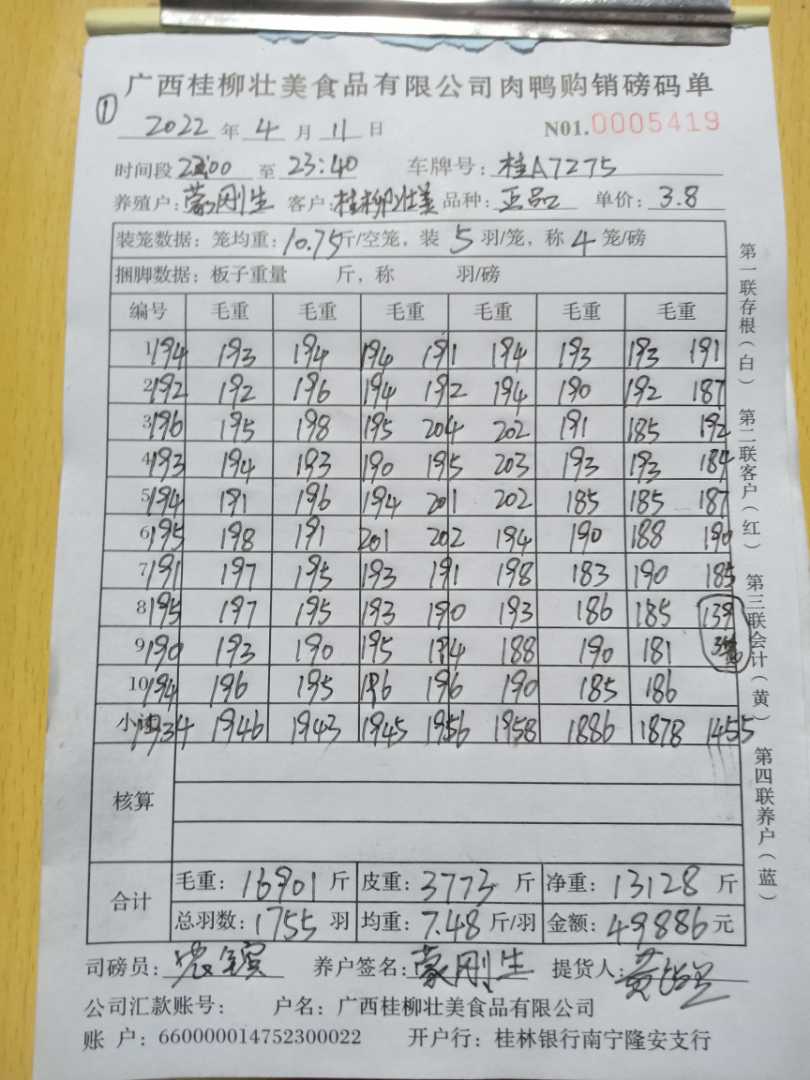 广西桂柳壮美食品有限公司肉鸭购销磅码单
① 2022 年 4 月 11 日 N01.0005419
时间段 22:00 至 23:40 车牌号: 桂A7275
养殖户: 蒙刚生 客户: 桂柳壮美 品种: 正品 单价: 3.8
装笼数据: 笼均重: 10.75 斤/空笼, 装 5 羽/笼, 称 4 笼/磅
捆脚数据: 板子重量 斤, 称 羽/磅
编号 毛重 毛重 毛重 毛重 毛重 毛重
1 194 193 194 194 191 194 193 193 191
2 192 192 196 194 192 194 190 192 187
3 196 195 198 195 204 202 191 185 192
4 193 194 193 190 195 203 193 193 184
5 194 191 196 194 201 202 185 185 187
6 195 198 191 201 202 194 190 188 190
7 191 197 195 193 191 198 183 190 185
8 195 197 195 193 190 193 186 185 139
9 190 193 190 195 194 188 190 181 3笼
10 194 196 195 196 196 190 185 186
小计 1934 1946 1943 1945 1956 1958 1886 1878 1455
核算
合计
毛重: 16901 斤 皮重: 3773 斤 净重: 13128 斤
总羽数: 1755 羽 均重: 7.48 斤/羽 金额: 49886 元
司磅员: 养户签名: 蒙刚生 提货人: 黄
公司汇款账号: 户名: 广西桂柳壮美食品有限公司
账 户: 660000014752300022 开户行: 桂林银行南宁隆安支行
第一联存根(白) 第二联客户(红) 第三联会计(黄) 第四联养户(蓝)